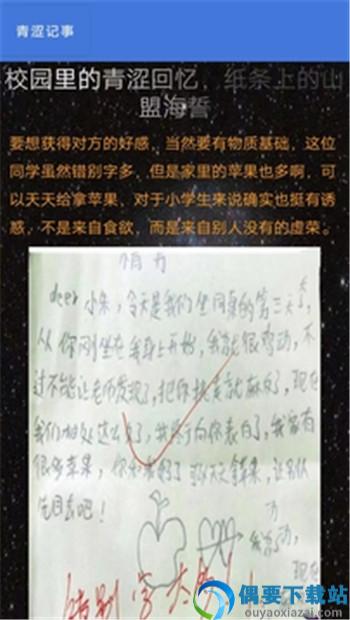 青涩记事
校园里的青涩回忆，纸条上的山
盟海誓
要想获得对方的好感，当然要有物质基础，这位
同学虽然错别字多，但是家里的苹果也多啊，可
以天天给拿苹果，对于小学生来说确实也挺有诱
惑，不是来自食欲，而是来自别人没有的虚荣。
deer 小朱，今天是我们坐同桌的第三天了
从你刚坐在我身上开始，我就很鸡动，不
过不能让老师发现了，把你
就麻反了，现在
我们
这么
，我
向你表白了，我家有
很多苹果，你
天天拿苹果，让别
去吧！
错别字太多
偶要下载站
ouyaoxiazai.com